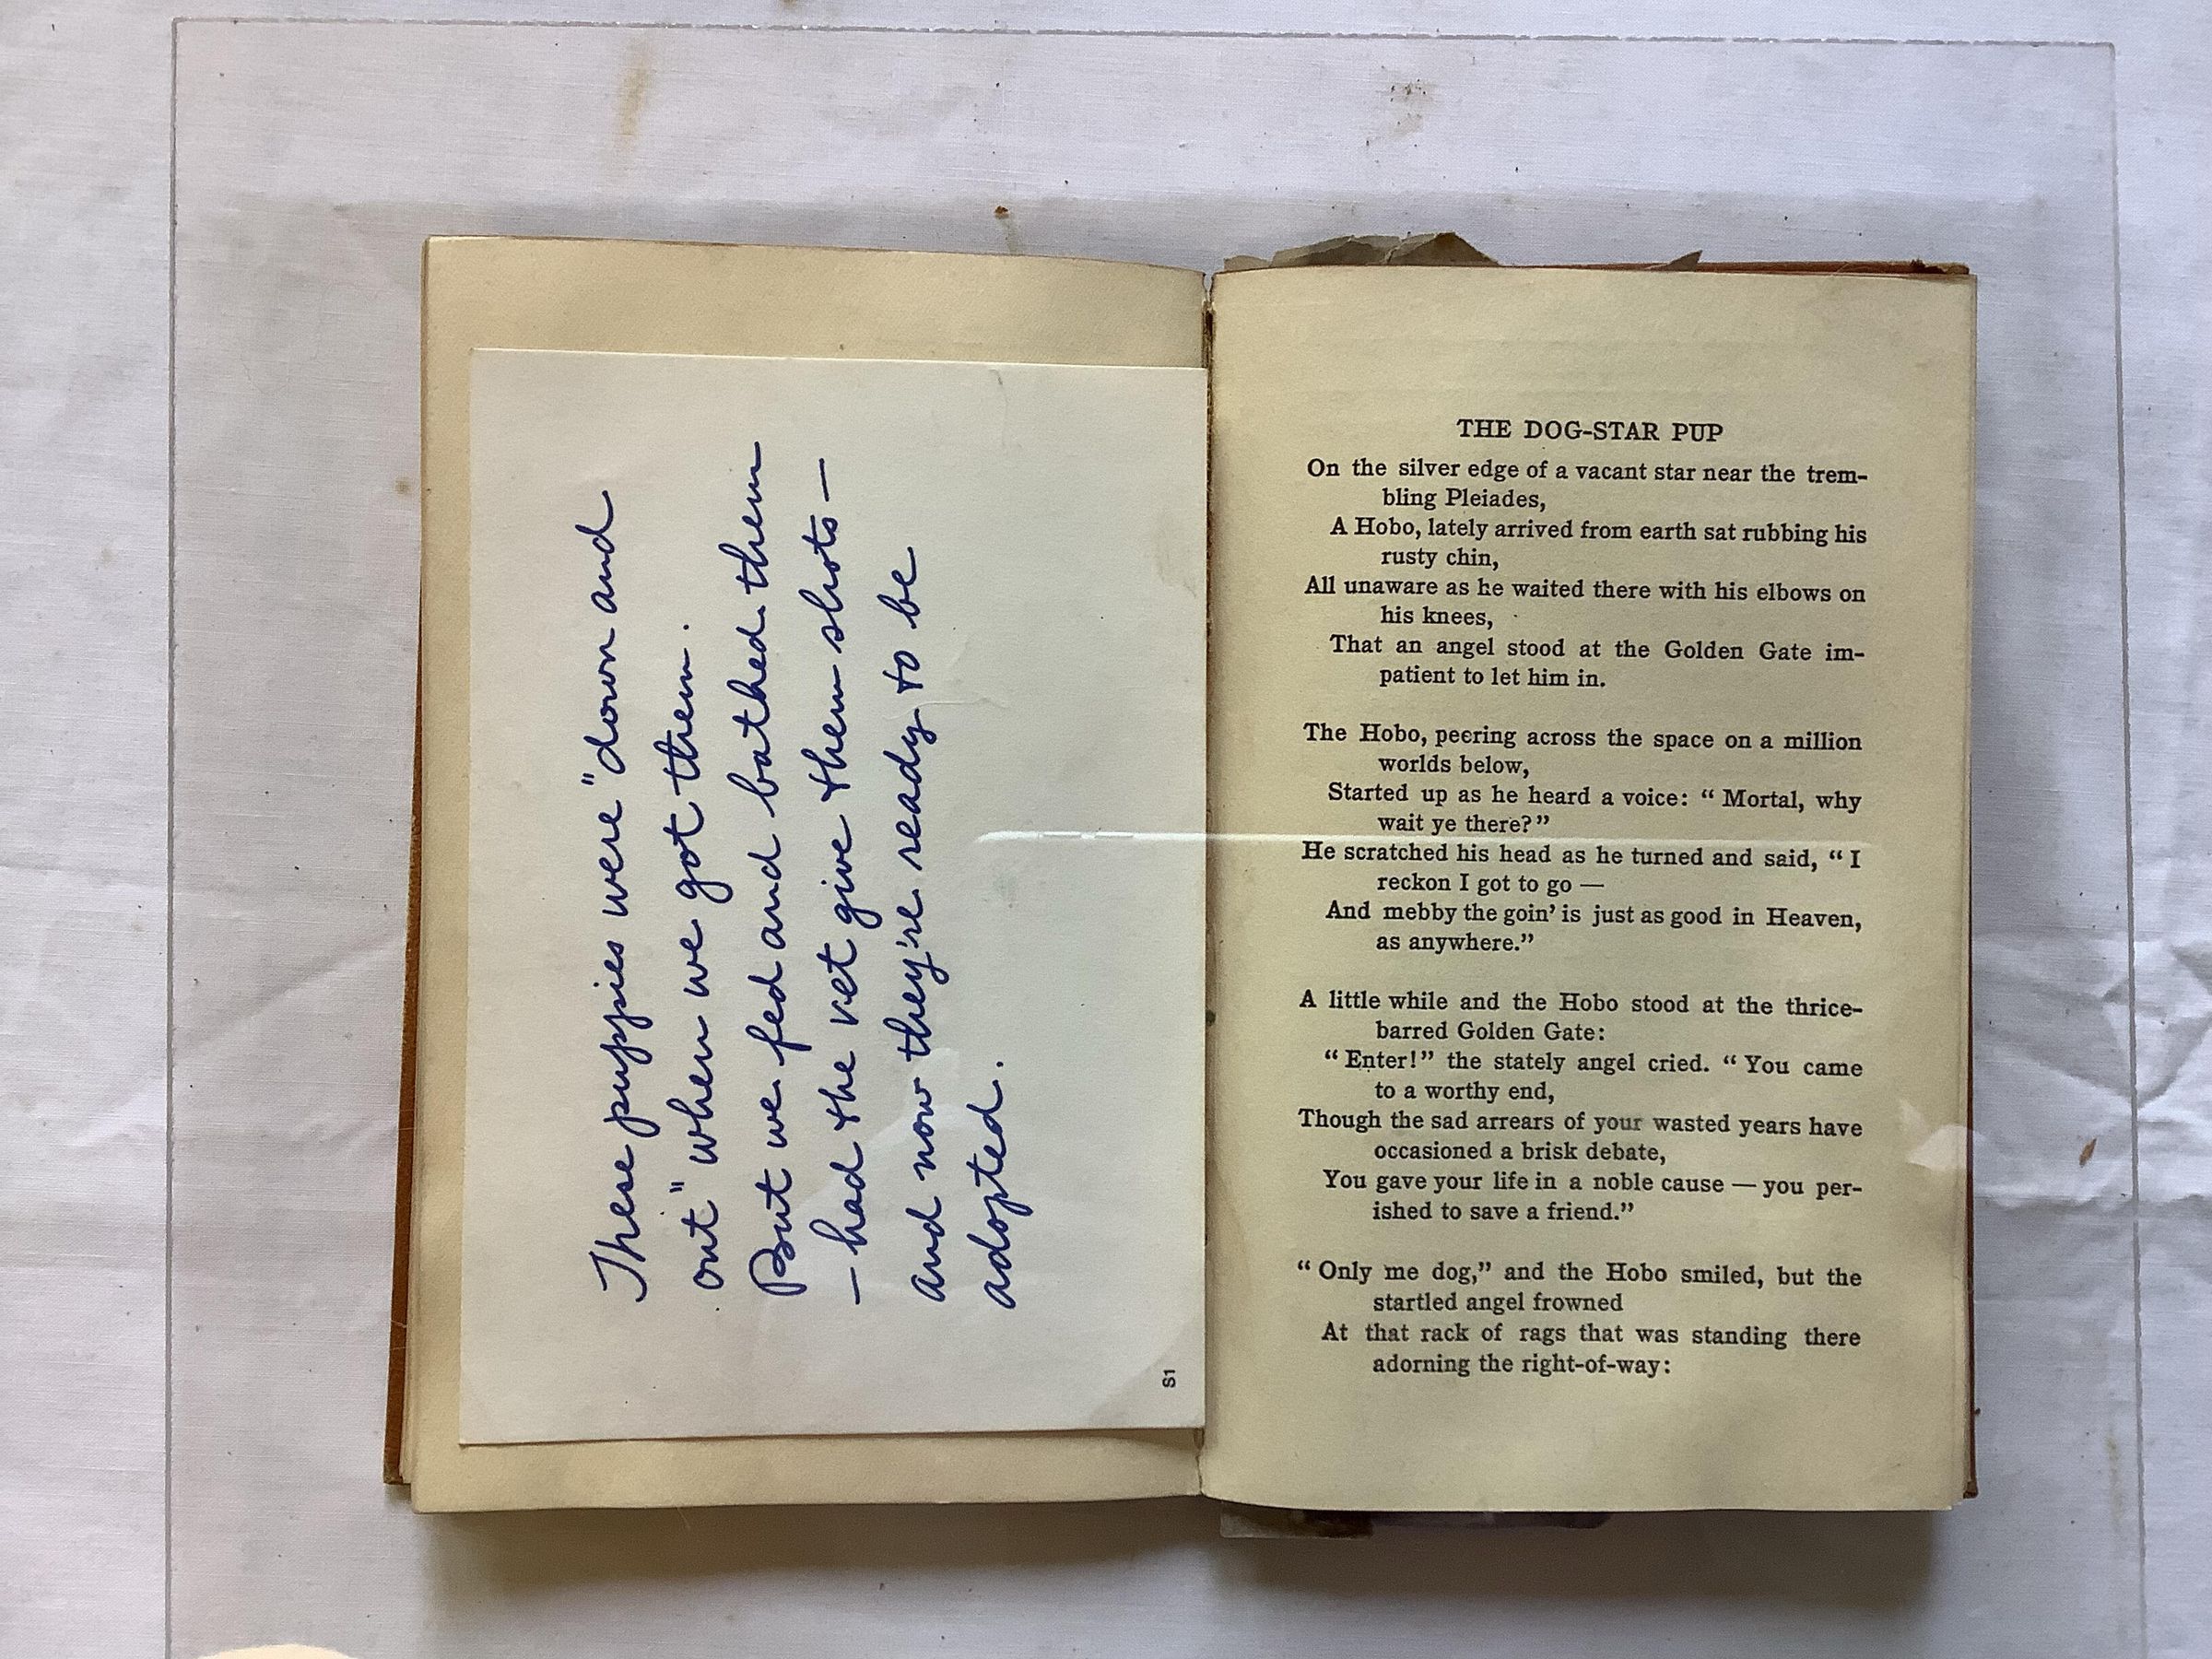 These puppies were "down and
out" when we got them.
But we fed and bathed them
— had the vet give them shots —
and now they're ready to be
adopted.
S1
THE DOG-STAR PUP
On the silver edge of a vacant star near the trem-
bling Pleiades,
A Hobo, lately arrived from earth sat rubbing his
rusty chin,
All unaware as he waited there with his elbows on
his knees,
That an angel stood at the Golden Gate im-
patient to let him in.
The Hobo, peering across the space on a million
worlds below,
Started up as he heard a voice: “ Mortal, why
wait ye there?”
He scratched his head as he turned and said, “ I
reckon I got to go —
And mebby the goin’ is just as good in Heaven,
as anywhere.”
A little while and the Hobo stood at the thrice-
barred Golden Gate:
“ Enter!” the stately angel cried. “ You came
to a worthy end,
Though the sad arrears of your wasted years have
occasioned a brisk debate,
You gave your life in a noble cause — you per-
ished to save a friend.”
“ Only me dog,” and the Hobo smiled, but the
startled angel frowned
At that rack of rags that was standing there
adorning the right-of-way: